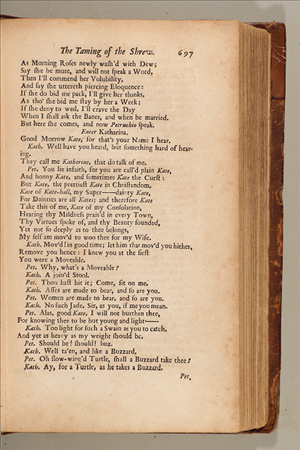 The Taming of the Shrew. 697
As Morning Roses newly wash'd with Dew;
Say she be mute, and will not speak a Word,
Then I'll commend her Volubility,
And say she uttereth piercing Eloquence:
If she do bid me pack, I'll give her thanks,
As tho' she bid me stay by her a Week;
If she deny to wed, I'll crave the Day
When I shall ask the Banes, and when be married.
But here she comes, and now Petruchio speak.
Enter Katharina.
Good Morrow Kate, for that's your Name I hear.
Kath. Well have you heard, but something hard of hear-
ing.
They call me Katherine, that do talk of me.
Pet. You lie infaith, for you are call'd plain Kate,
And bonny Kate, and sometimes Kate the Curst:
But Kate, the prettiest Kate in Christendom,
Kate of Kate-hall, my Super——dainty Kate,
For Dainties are all Kates; and therefore Kate
Take this of me, Kate of my Consolation,
Hearing thy Mildness prais'd in every Town,
Thy Virtues spoke of, and thy Beauty sounded,
Yet not so deeply as to thee belongs,
My self am mov'd to woo thee for my Wife.
Kath. Mov'd! in good time; let him that mov'd you hither,
Remove you hence: I knew you at the first
You were a Moveable.
Pet. Why, what's a Moveable?
Kath. A join'd Stool.
Pet. Thou hast hit it; Come, sit on me.
Kath. Asses are made to bear, and so are you.
Pet. Women are made to bear, and so are you.
Kath. No such Jade, Sir, as you, if me you mean.
Pet. Alas, good Kate, I will not burthen thee,
For knowing thee to be but young and light——
Kath. Too light for such a Swain as you to catch,
And yet as heavy as my weight should be.
Pet. Should be! should! buz.
Kath. Well ta'en, and like a Buzzard.
Pet. Oh slow-wing'd Turtle, shall a Buzzard take thee?
Kath. Ay, for a Turtle, as he takes a Buzzard.
Pet,